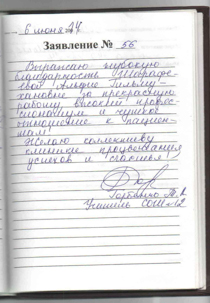 6 июня 
Заявление № 56
Выражаю глубокую
благодарность
за прекрасную
работу, высокий профес-
сионализм и чуткое
отношение к пациен-
там!
Желаю коллективу
клиники процветания
успехов и счастья!
Горбенко
Учитель СОШ